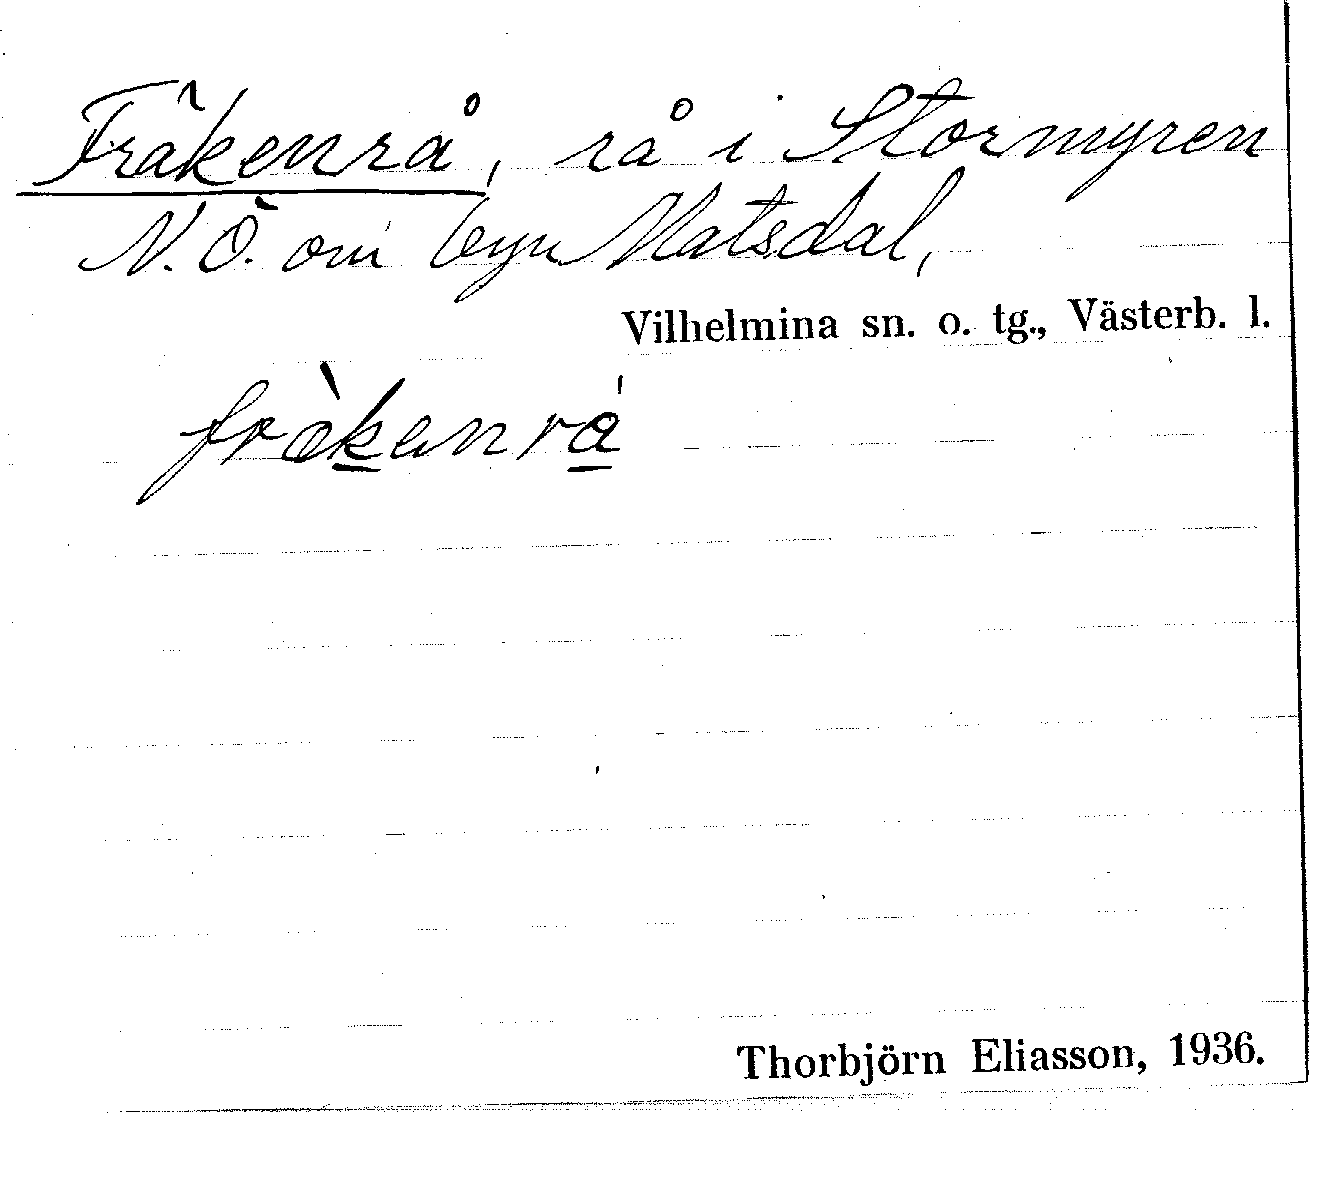 Fräkenrå, rå i Stormyren
N.Ö. om byn Matsdal,
Vilhelmina sn. o. tg., Västerb. l.
fràkenrá
Thorbjörn Eliasson, 1936.